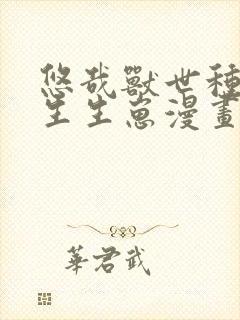 悠哉獸世種
生生崽漫畫
華君武